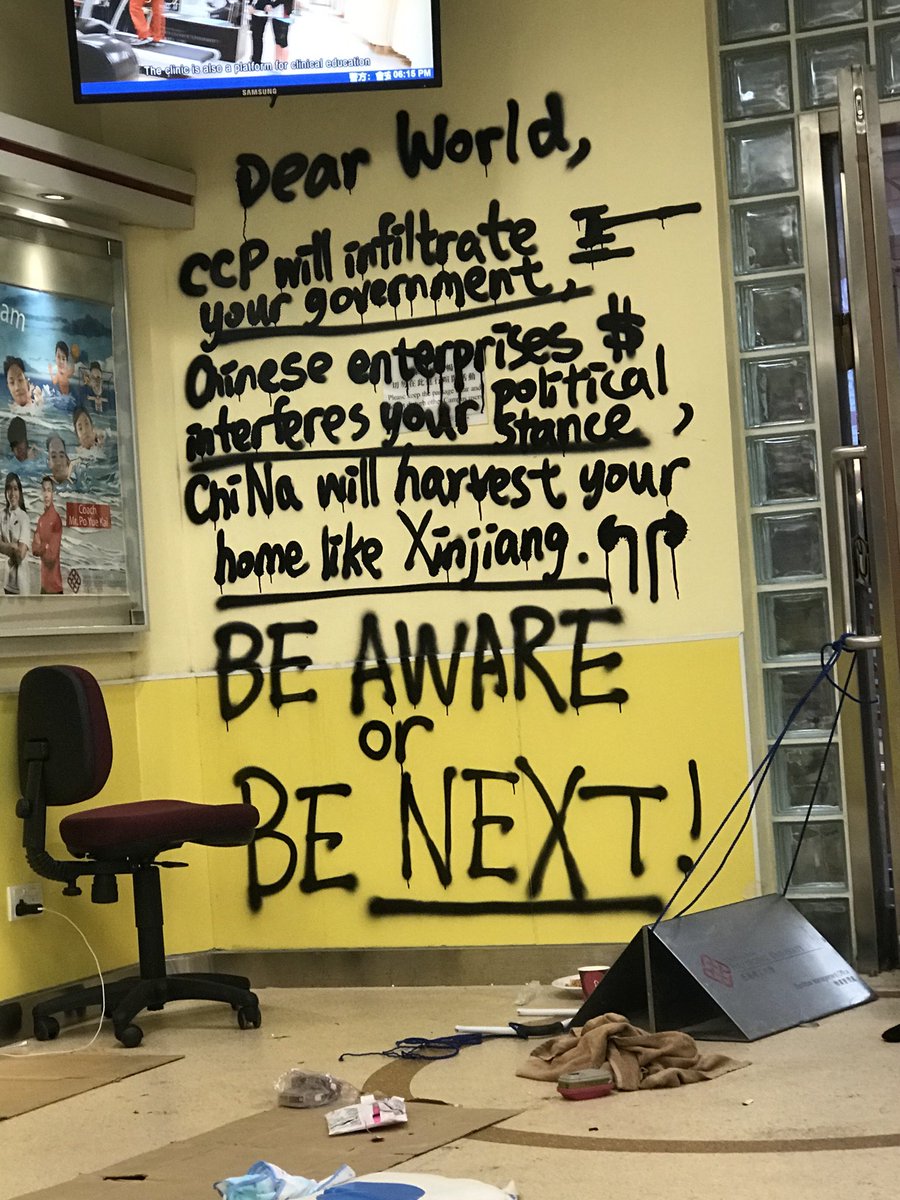 The clinic is also a platform for clinical education
06:15 PM
SAMSUNG
Dear World,
CCP will infiltrate
your government,
Chinese enterprises $
interferes your political
stance,
ChiNa will harvest your
home like Xinjiang.
am
Coach
Mr. Po Yue Kai
BE AWARE
or
BE NEXT!